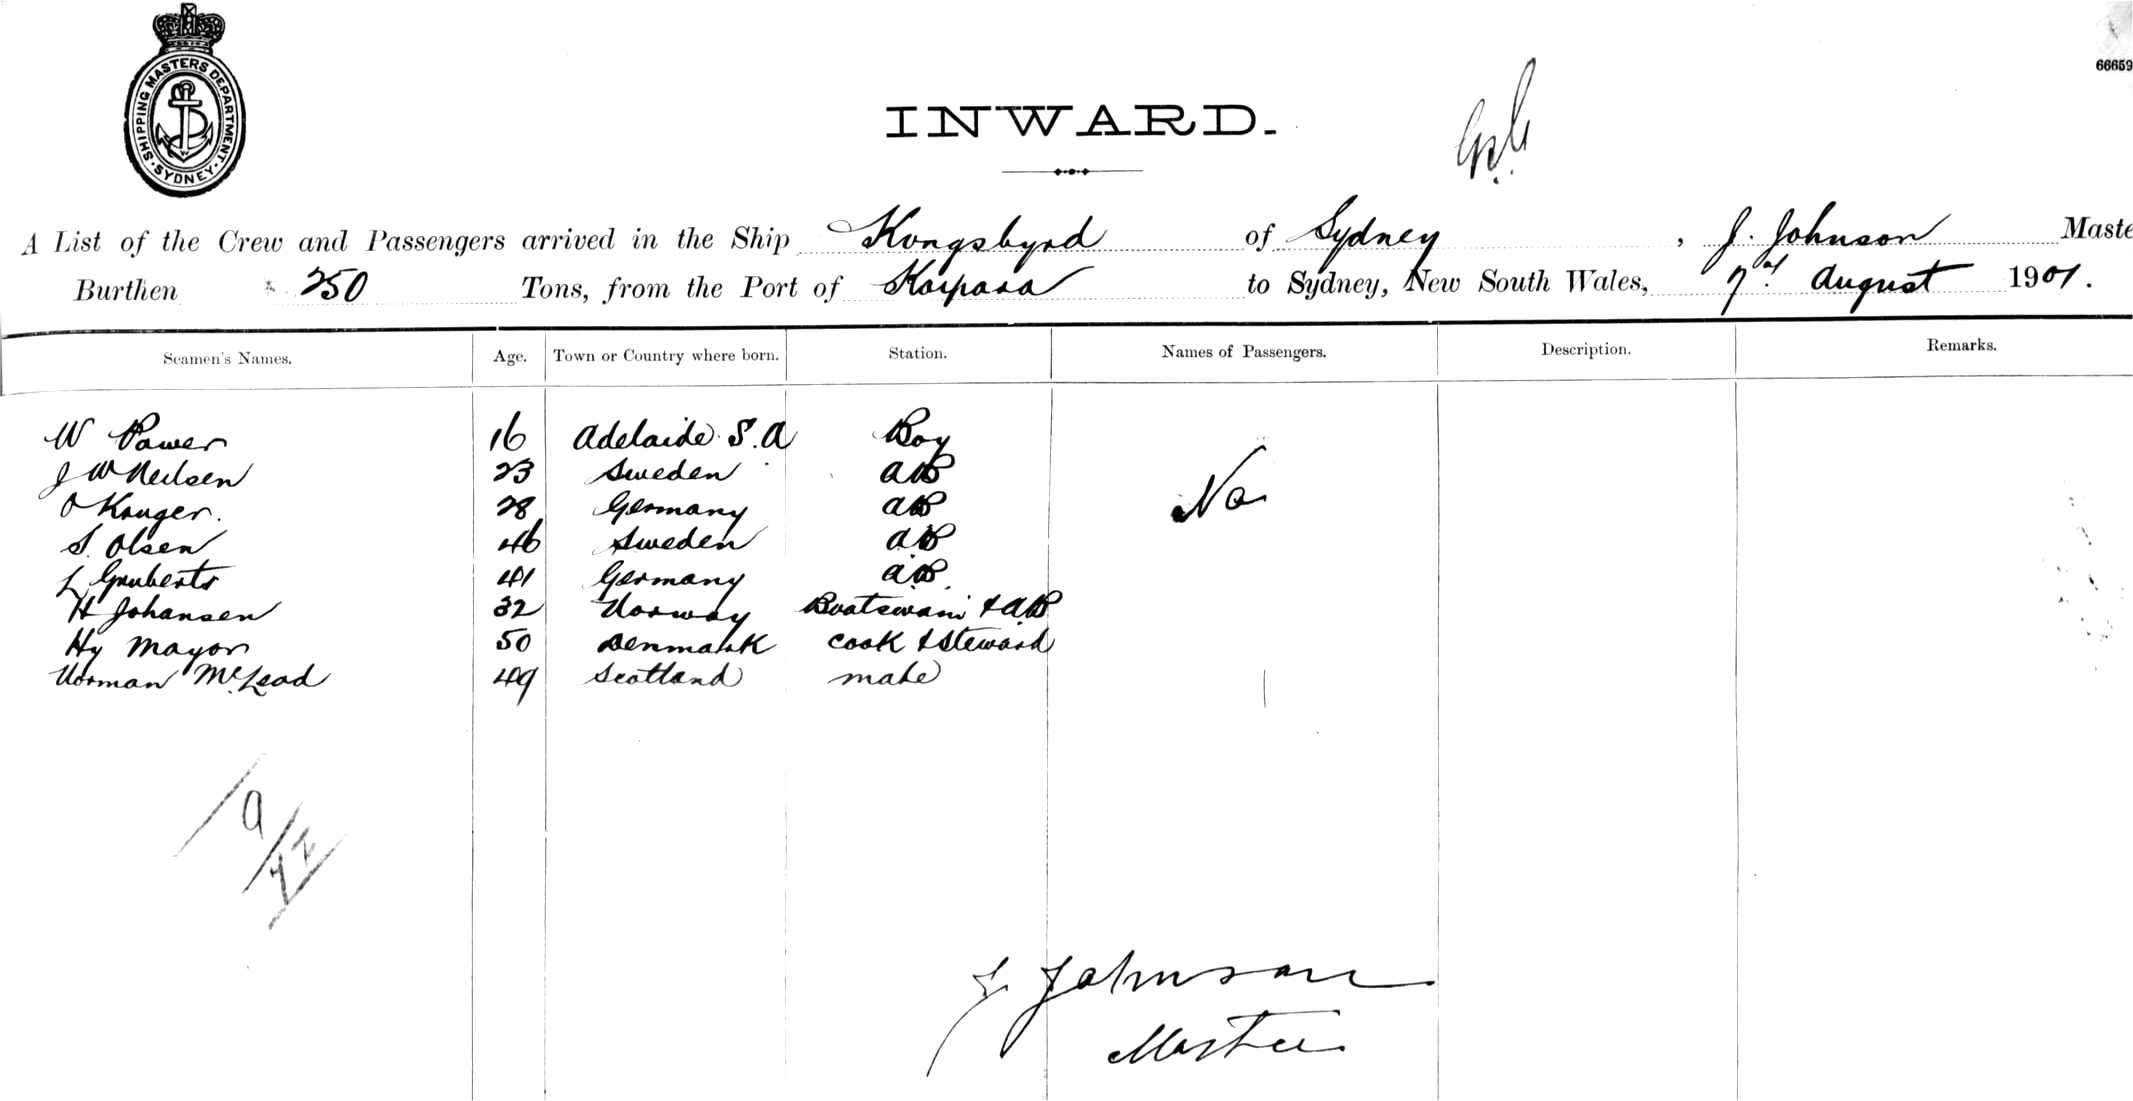 SHIPPING MASTERS DEPARTMENT · SYDNEY ·
66659
INWARD.
A List of the Crew and Passengers arrived in the Ship Kongsbyrd of Sydney, J. Johnson Maste
Burthen 250 Tons, from the Port of Kaipara to Sydney, New South Wales, 7th August 1901.
Seamen's Names. Age. Town or Country where born. Station. Names of Passengers. Description. Remarks.
W Power 16 Adelaide S.A Boy
J W Neilsen 23 Sweden AB No
O Kruger. 28 Germany AB
S. Olsen 46 Sweden AB
L Gruberts 41 Germany AB
H Johansen 32 Norway Boatswain & AB
Hy Mayor 50 Denmark Cook & Steward
Norman McLeod 49 Scotland mate
J. Johnson
Master